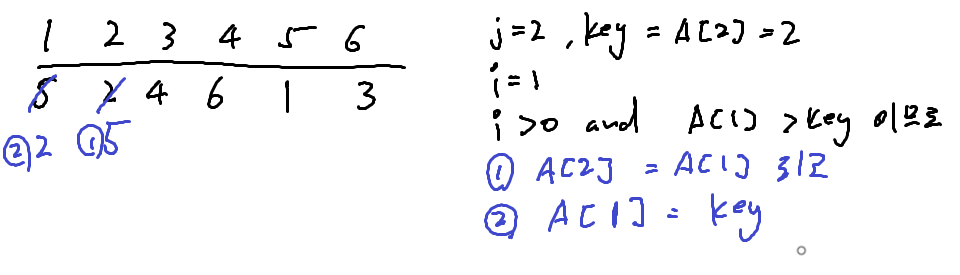 1 2 3 4 5 6
5 2 4 6 1 3
②2 ①5
j=2, key = A[2] = 2
i=1
i>0 and A[1] > key 이므로
① A[2] = A[1] 되고
② A[1] = key